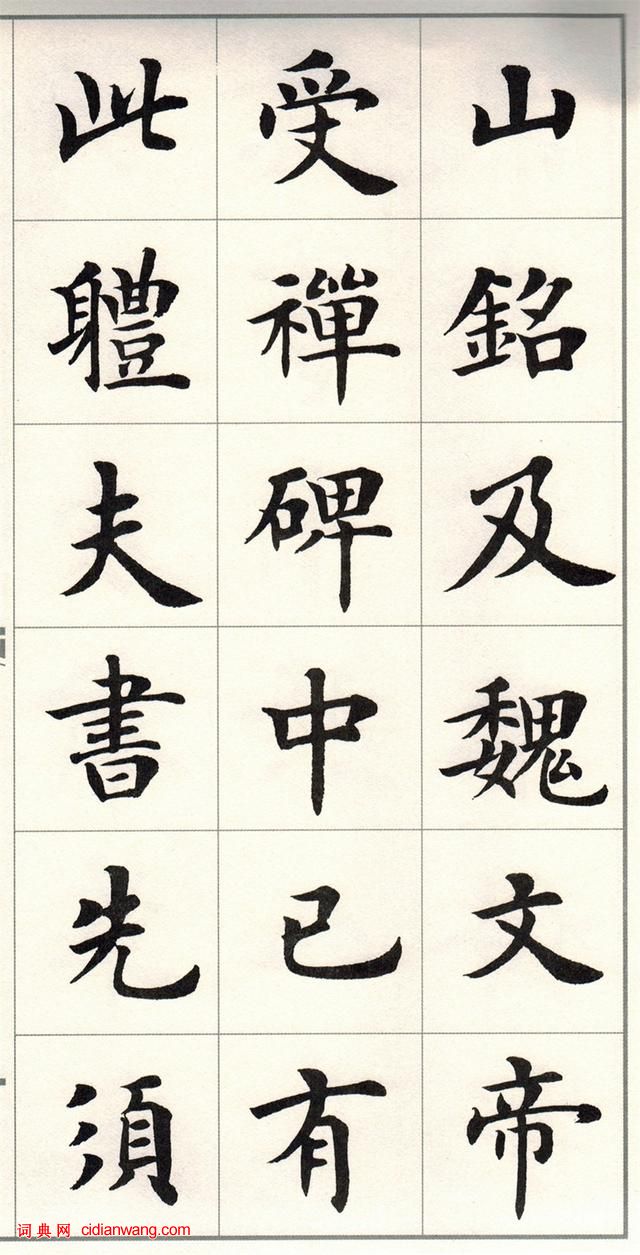 山銘及魏文帝
受禪碑中已有
此軆夫書先須
词典网 cidianwang.com